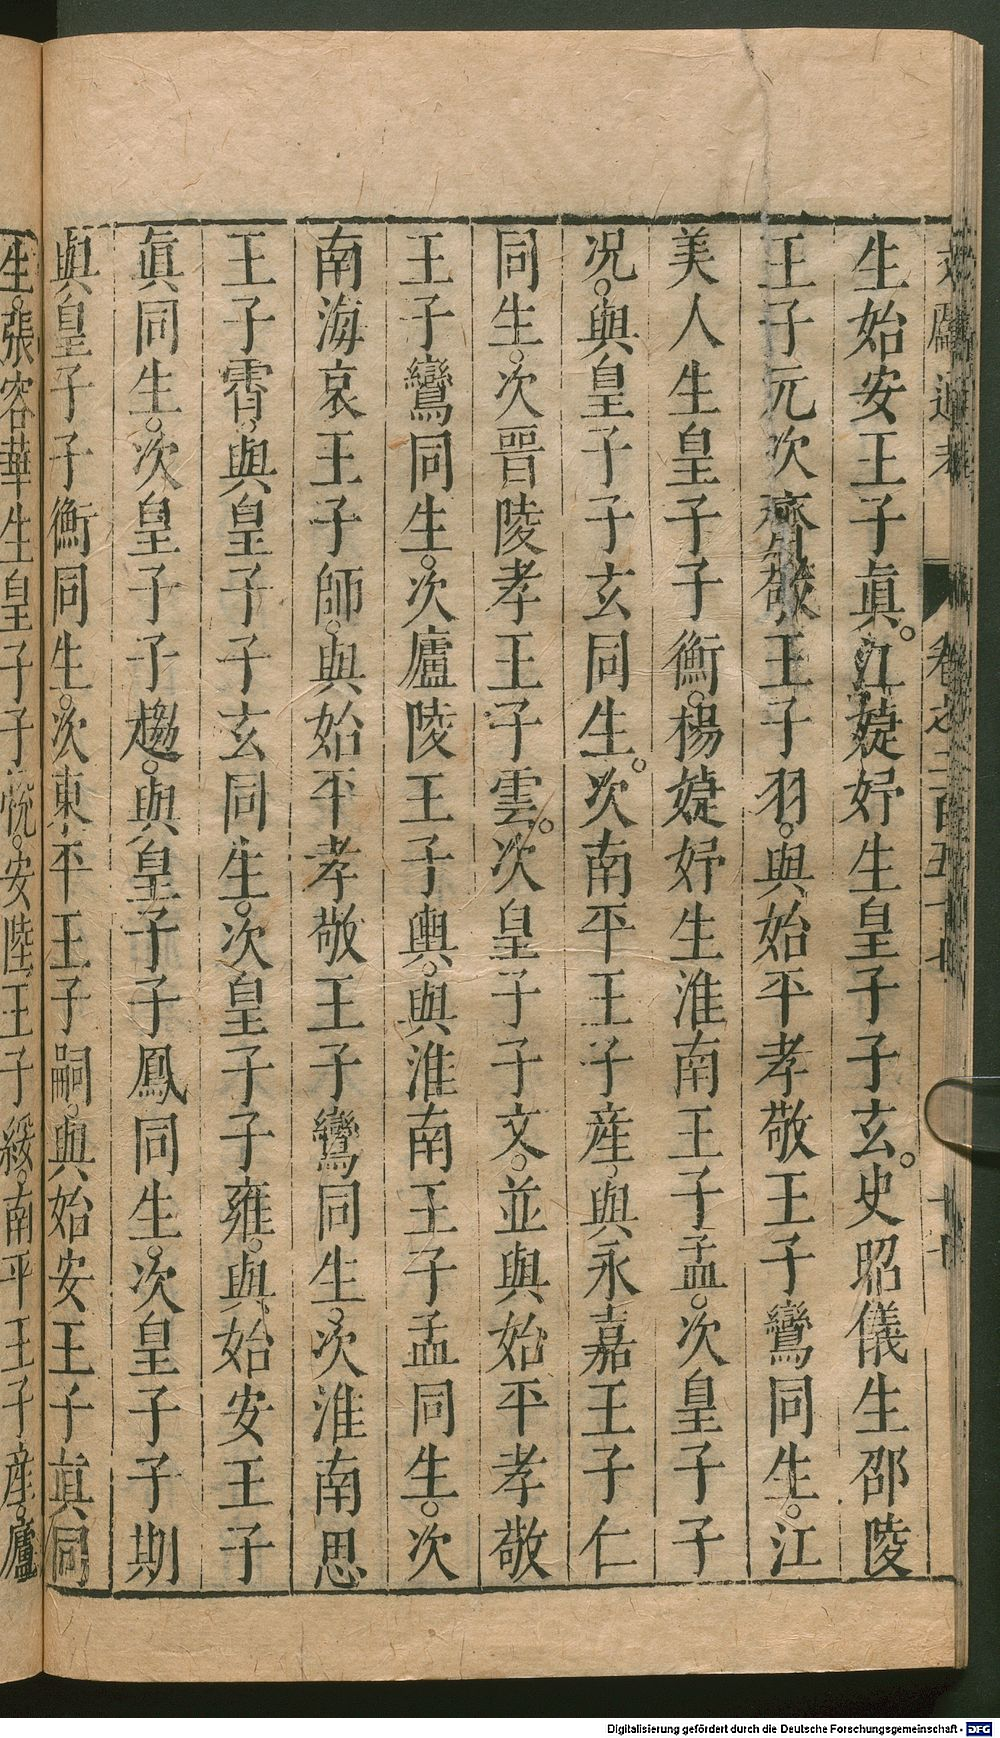 文獻通考　卷之二百五十七　十七
生始安王子眞。江婕妤生皇子子玄。史昭儀生邵陵
王子元次齊敬王子羽。與始平孝敬王子鸞同生。江
美人生皇子子衡。楊婕妤生淮南王子孟。次皇子子
况。與皇子子玄同生。次南平王子産。與永嘉王子仁
同生。次晉陵孝王子雲。次皇子子文。並與始平孝敬
王子鸞同生。次廬陵王子輿。與淮南王子孟同生。次
南海哀王子師。與始平孝敬王子鸞同生。次淮南思
王子霄。與皇子子玄同生。次皇子子雍。與始安王子
眞同生。次皇子子趨。與皇子子鳳同生。次皇子子期
與皇子子衡同生。次東平王子嗣。與始安王子眞同
生。張容華生皇子子悅。安陸王子綏。南平王子産。廬
Digitalisierung gefördert durch die Deutsche Forschungsgemeinschaft - DFG